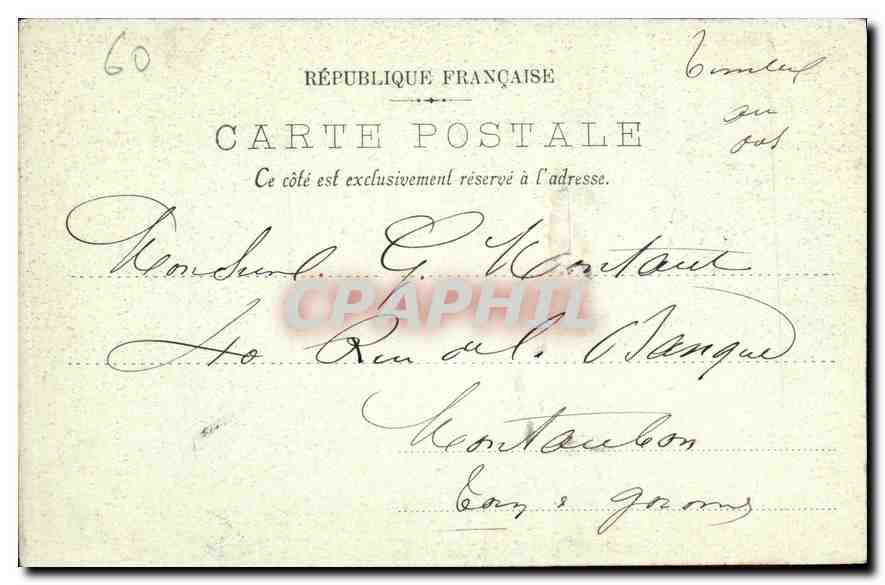 60
RÉPUBLIQUE FRANÇAISE
Timbre
au
dos
CARTE POSTALE
Ce côté est exclusivement réservé à l'adresse.
Monsieur G. Montaut
CPAPHIL
40 Rue de la Banque
Montauban
Tarn & Garonne